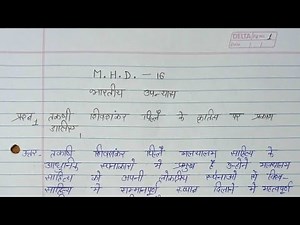 DELTA Pg No. 1
M.H.D. - 16
भारतीय उपन्यास
प्रश्न 1 तकषी शिवशंकर पिल्लै के कृतित्व पर प्रकाश
डालिए।
उत्तर- तकषि शिवशंकर पिल्लै मलयालम साहित्य के
आधुनिक रचनाकारों में प्रमुख हैं उन्होंने मलयालम
साहित्य को अपनी लोकप्रिय रचनाओं से विश्व-
साहित्य में सम्मानपूर्ण स्थान दिलाने में महत्वपूर्ण